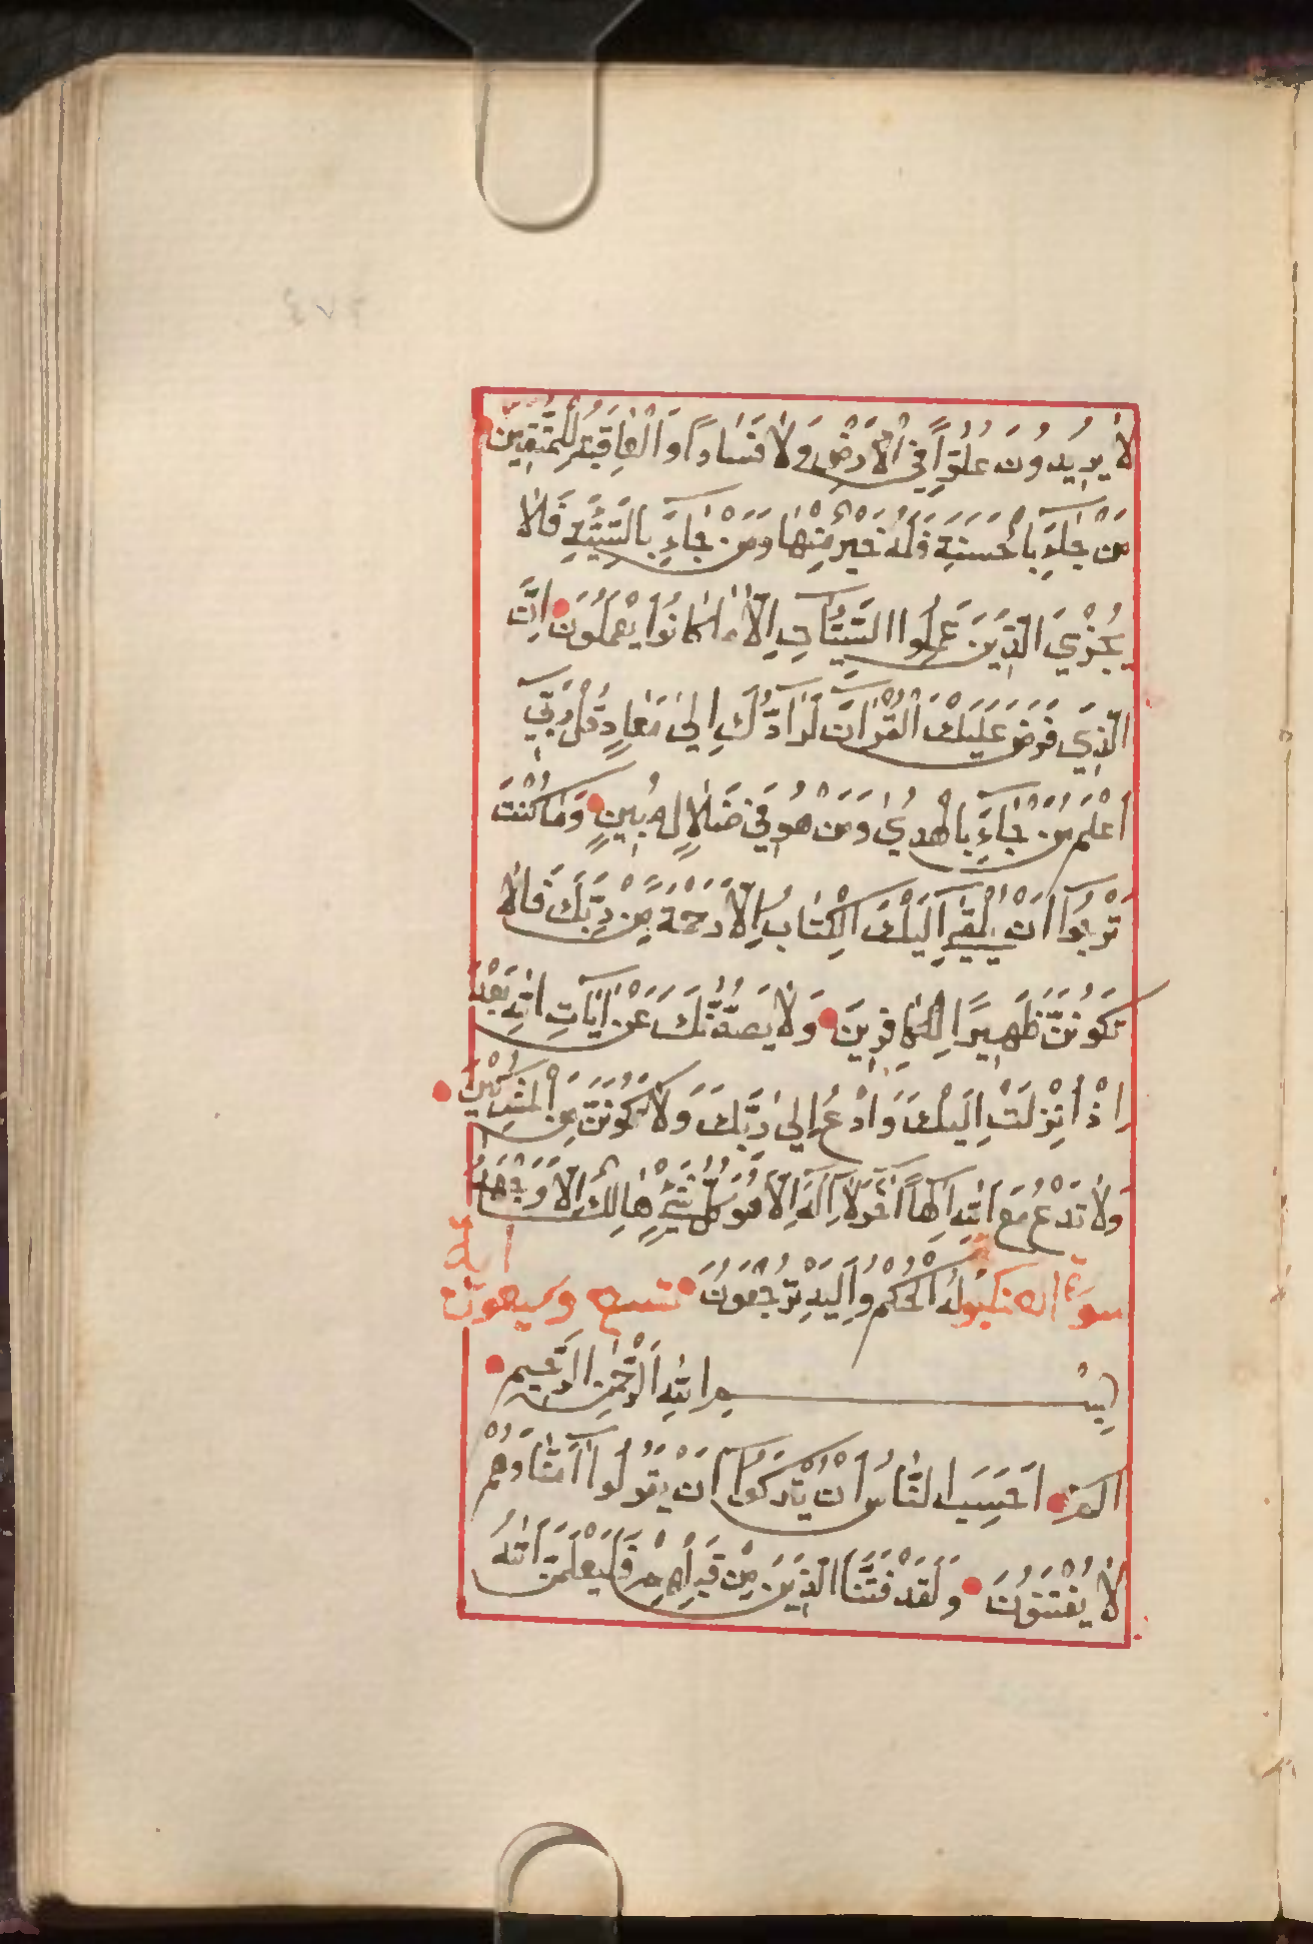 لَا يُرِيدُونَ عُلُوًّا فِي الْأَرْضِ وَلَا فَسَادًا وَالْعَاقِبَةُ لِلْمُتَّقِينَ
مَنْ جَاءَ بِالْحَسَنَةِ فَلَهُ خَيْرٌ مِنْهَا وَمَنْ جَاءَ بِالسَّيِّئَةِ فَلَا
يُجْزَي الَّذِينَ عَمِلُوا السَّيِّئَاتِ اِلَّا مَا كَانُوا يَعْمَلُونَ اِنَّ
الَّذِي فَرَضَ عَلَيْكَ الْقُرْآنَ لَرَآدُّكَ اِلَىٰ مَعَادٍ قُلْ رَبِّي
اَعْلَمُ مَنْ جَاءَ بِالْهُدَىٰ وَمَنْ هُوَ فِي ضَلَالٍ مُبِينٍ وَمَا كُنْتَ
تَرْجُوآ اَنْ يُلْقَىٰٓ اِلَيْكَ الْكِتَابُ اِلَّا رَحْمَةً مِنْ رَبِّكَ فَلَا
تَكُونَنَّ ظَهِيرًا لِلْكَافِرِينَ وَلَا يَصُدُّنَّكَ عَنْ اٰيَاتِ اللّٰهِ بَعْدَ
اِذْ اُنْزِلَتْ اِلَيْكَ وَادْعُ اِلَىٰ رَبِّكَ وَلَا تَكُونَنَّ مِنَ الْمُشْرِكِينَ
وَلَا تَدْعُ مَعَ اللّٰهِ اِلٰهًا اٰخَرَ لَآ اِلٰهَ اِلَّا هُوَ كُلُّ شَيْءٍ هَالِكٌ اِلَّا وَجْهَهُ
سورة العنكبو لَهُ الْحُكْمُ وَاِلَيْهِ تُرْجَعُونَ تسع وسبعون اية
بِسْمِ اللّٰهِ الرَّحْمٰنِ الرَّحِيمِ
الٓمٓ اَحَسِبَ النَّاسُ اَنْ يُتْرَكُوآ اَنْ يَقُولُوآ اٰمَنَّا وَهُمْ
لَا يُفْتَنُونَ وَلَقَدْ فَتَنَّا الَّذِينَ مِنْ قَبْلِهِمْ فَلَيَعْلَمَنَّ اللّٰهُ